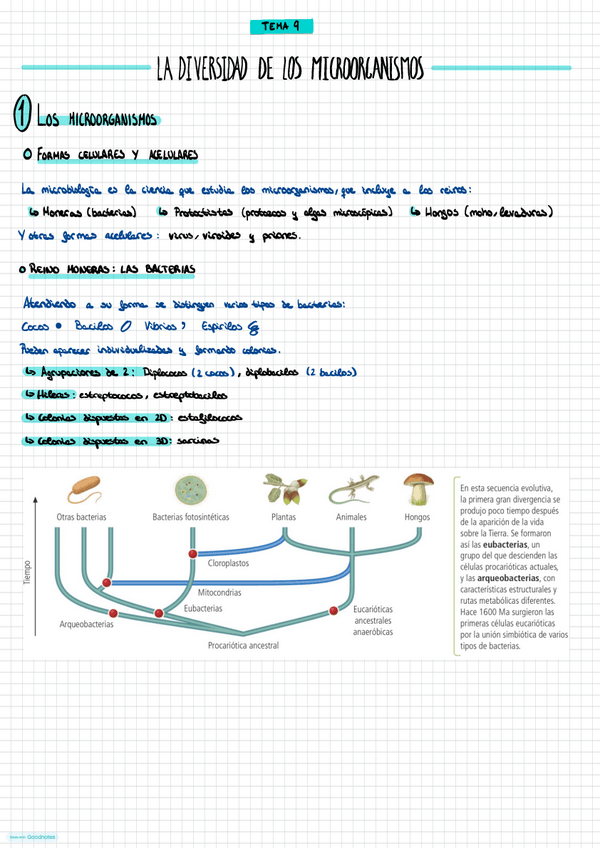 TEMA 9
LA DIVERSIDAD DE LOS MICROORGANISMOS
1 LOS MICROORGANISMOS
FORMAS CELULARES Y ACELULARES
La microbiología es la ciencia que estudia los microorganismos, que incluye a los reinos:
↳ Moneras (bacterias) ↳ Protoctistas (protozoos y algas microscópicas) ↳ Hongos (moho, levaduras)
Y otras formas acelulares: virus, viroides y priones.
REINO MONERAS: LAS BACTERIAS
Atendiendo a su forma se distinguen varios tipos de bacterias:
Cocos Bacilos Vibrios Espirilos
Pueden aparecer individualizadas y formando colonias.
↳ Agrupaciones de 2: Diplococos (2 cocos), diplobacilos (2 bacilos)
↳ Hileras: estreptococos, estreptobacilos
↳ Colonias dispuestas en 2D: estafilococos
↳ Colonias dispuestas en 3D: sarcinas
Otras bacterias
Bacterias fotosintéticas
Plantas
Animales
Hongos
Tiempo
Cloroplastos
Mitocondrias
Eubacterias
Arqueobacterias
Eucarióticas
ancestrales
anaeróbicas
Procariótica ancestral
En esta secuencia evolutiva,
la primera gran divergencia se
produjo poco tiempo después
de la aparición de la vida
sobre la Tierra. Se formaron
así las eubacterias, un
grupo del que descienden las
células procarióticas actuales,
y las arqueobacterias, con
características estructurales y
rutas metabólicas diferentes.
Hace 1600 Ma surgieron las
primeras células eucarióticas
por la unión simbiótica de varios
tipos de bacterias.
Goodnotes